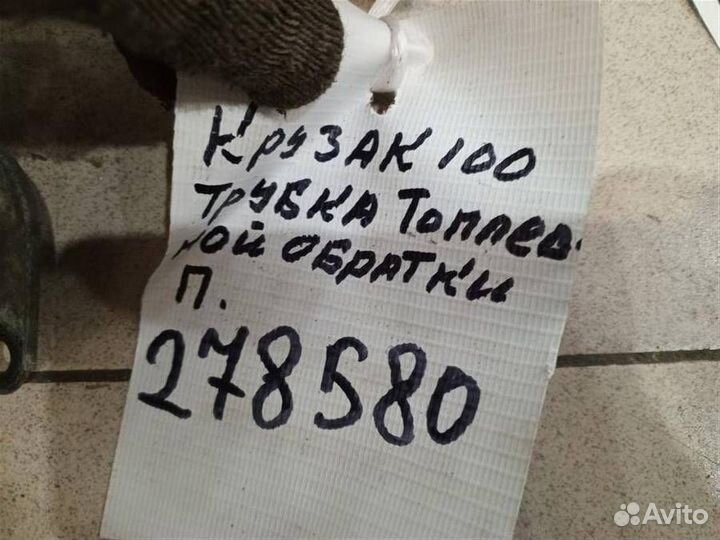 КРУЗАК 100
ТРУБКА ТОПЛЕВ
НОЙ ОБРАТКИ
П.
278580
Avito